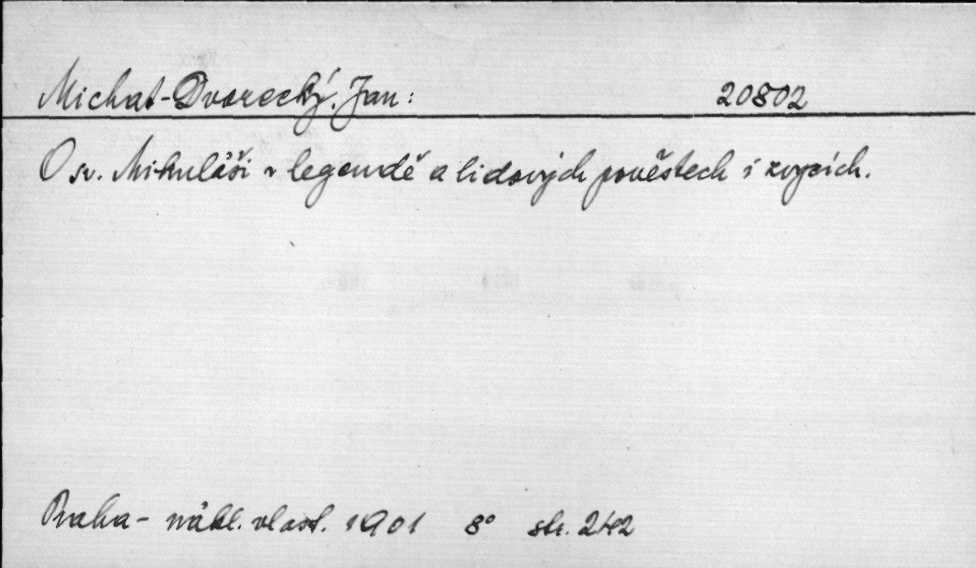 Michat-Dvorecký. Jan: 20802
O sv. Mikuláši v legendě a lidových pověstech i zvycích.
Praha - nákl. vlast. 1901 8° str. 242